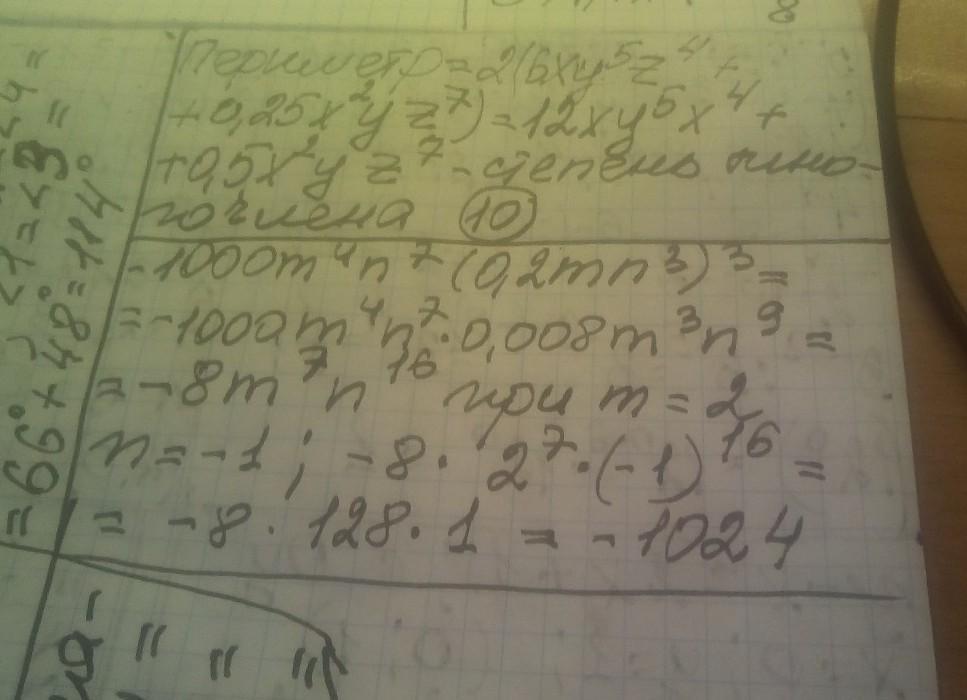 8
Периметр = 2(6xy⁵z⁴ +
+ 0,25x²yz⁷) = 12xy⁵x⁴ +
+ 0,5x²yz⁷ - степень мно-
гочлена 10
-1000m⁴n⁷(0,2mn³)³ =
= -1000m⁴n⁷·0,008m³n⁹ =
= -8m⁷n¹⁶ при m = 2
n = -1; -8·2⁷·(-1)¹⁶ =
= -8·128·1 = -1024
= 66° + 48° = 114°